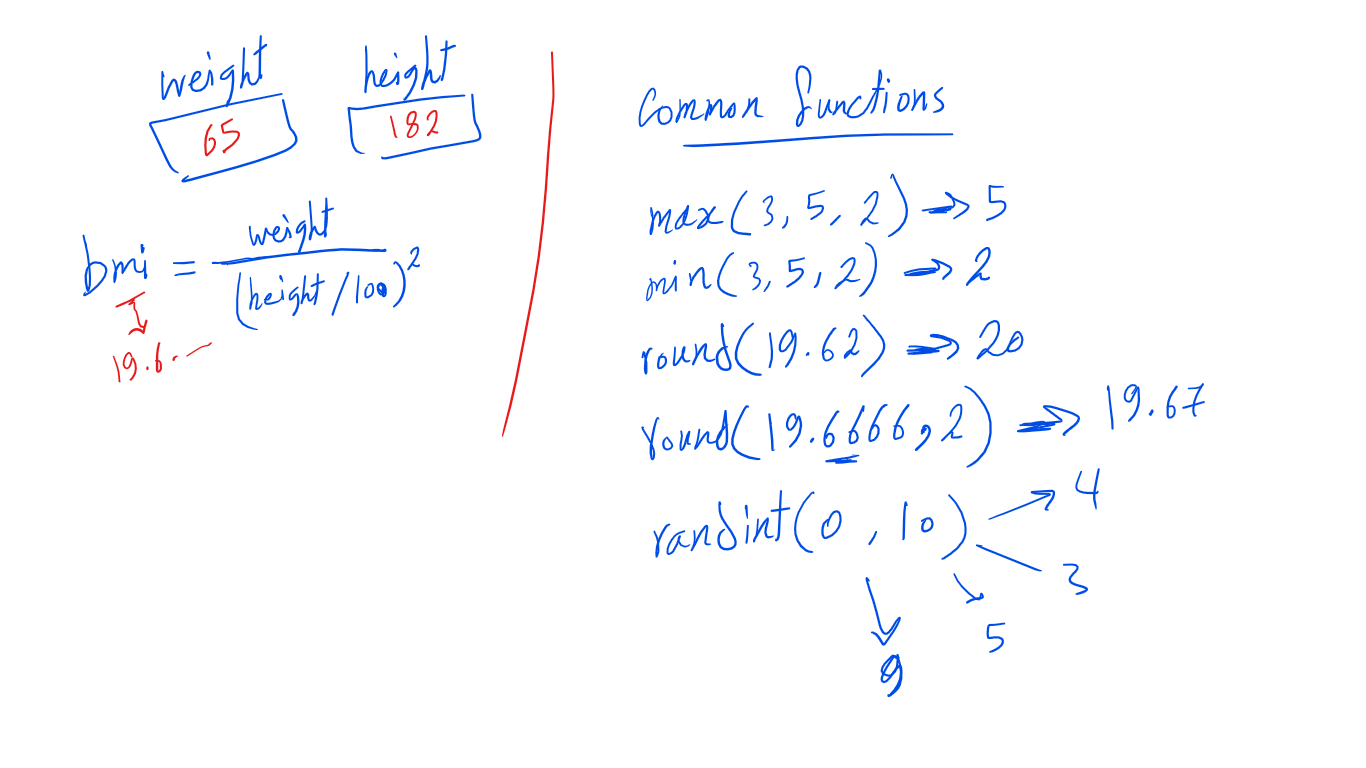 weight height
65 182
bmi = weight
(height/100)²
19.6.
Common functions
max(3, 5, 2) → 5
min(3, 5, 2) → 2
round(19.62) → 20
round(19.6666, 2) → 19.67
randint(0, 10) → 4
3
5
9